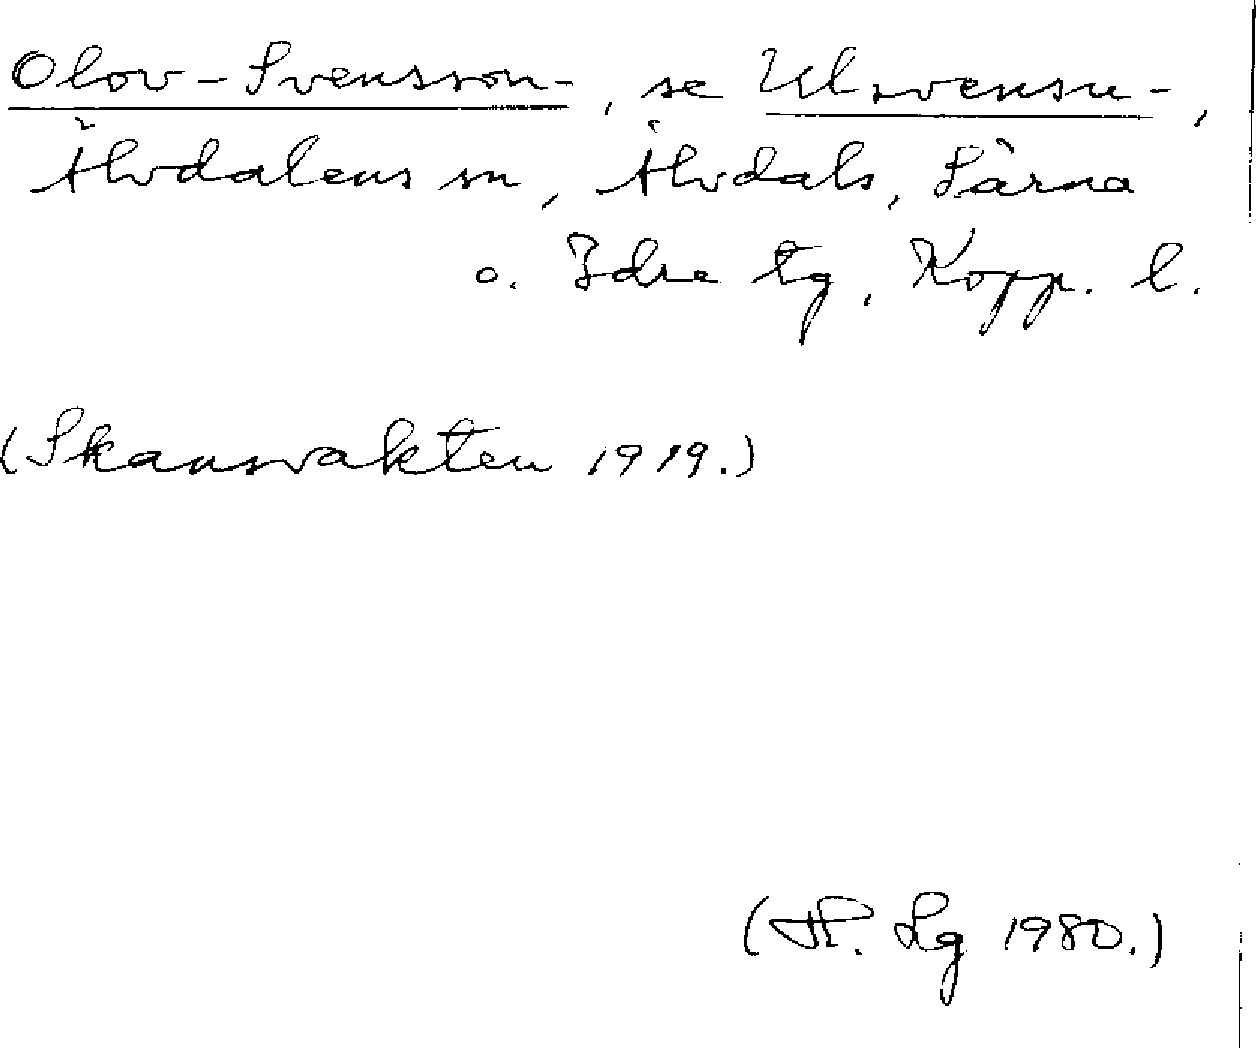 Olov-Svensson-, se Ulsvensu-,
Älvdalens sn, Älvdals, Särna
o. Idre tg, Kopp. l.
(Skansvakten 1919.)
(H. Lg 1980.)